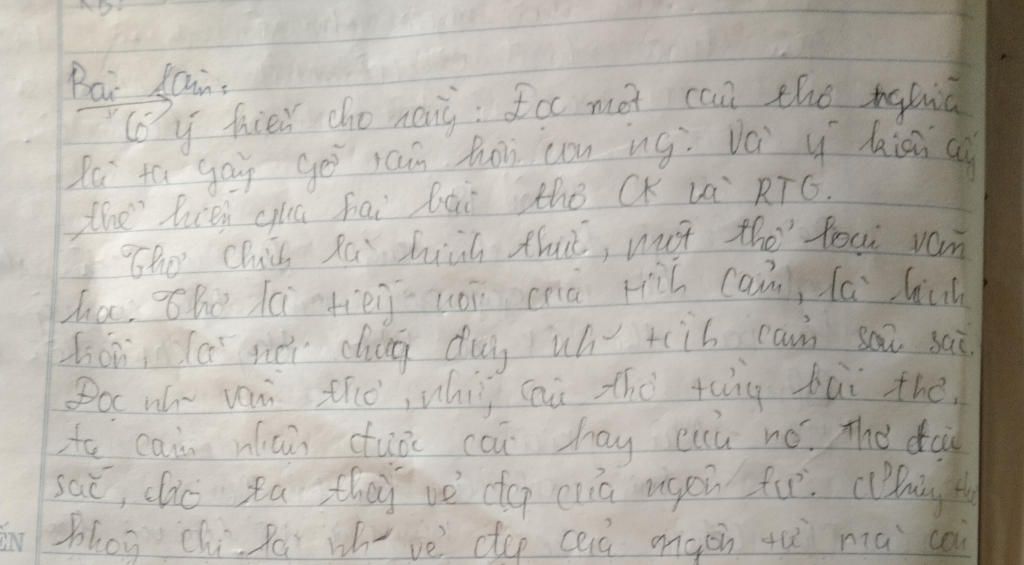 Bài làm:
"Có ý kiến cho rằng: Đọc một câu thơ nghĩa
là ta gặp gỡ tâm hồn con ng. Và ý kiến ấy
thể hiện qua hai bài thơ CK và RTG.
Thơ chính là hình thức, một thể loại văn
học. Thơ là tiếng nói của tình cảm, là linh
hồn, là nơi chứng đựng nh~ tình cảm sâu sắc.
Đọc nh~ vần thơ, nhữ, câu thơ từng bài thơ,
ta cảm nhận được cái hay của nó. Thơ đặc
sắc, cho ta thấy vẻ đẹp của ngôn từ. Nhưng thơ
không chỉ là nh~ vẻ đẹp của ngôn từ mà còn
ẾN